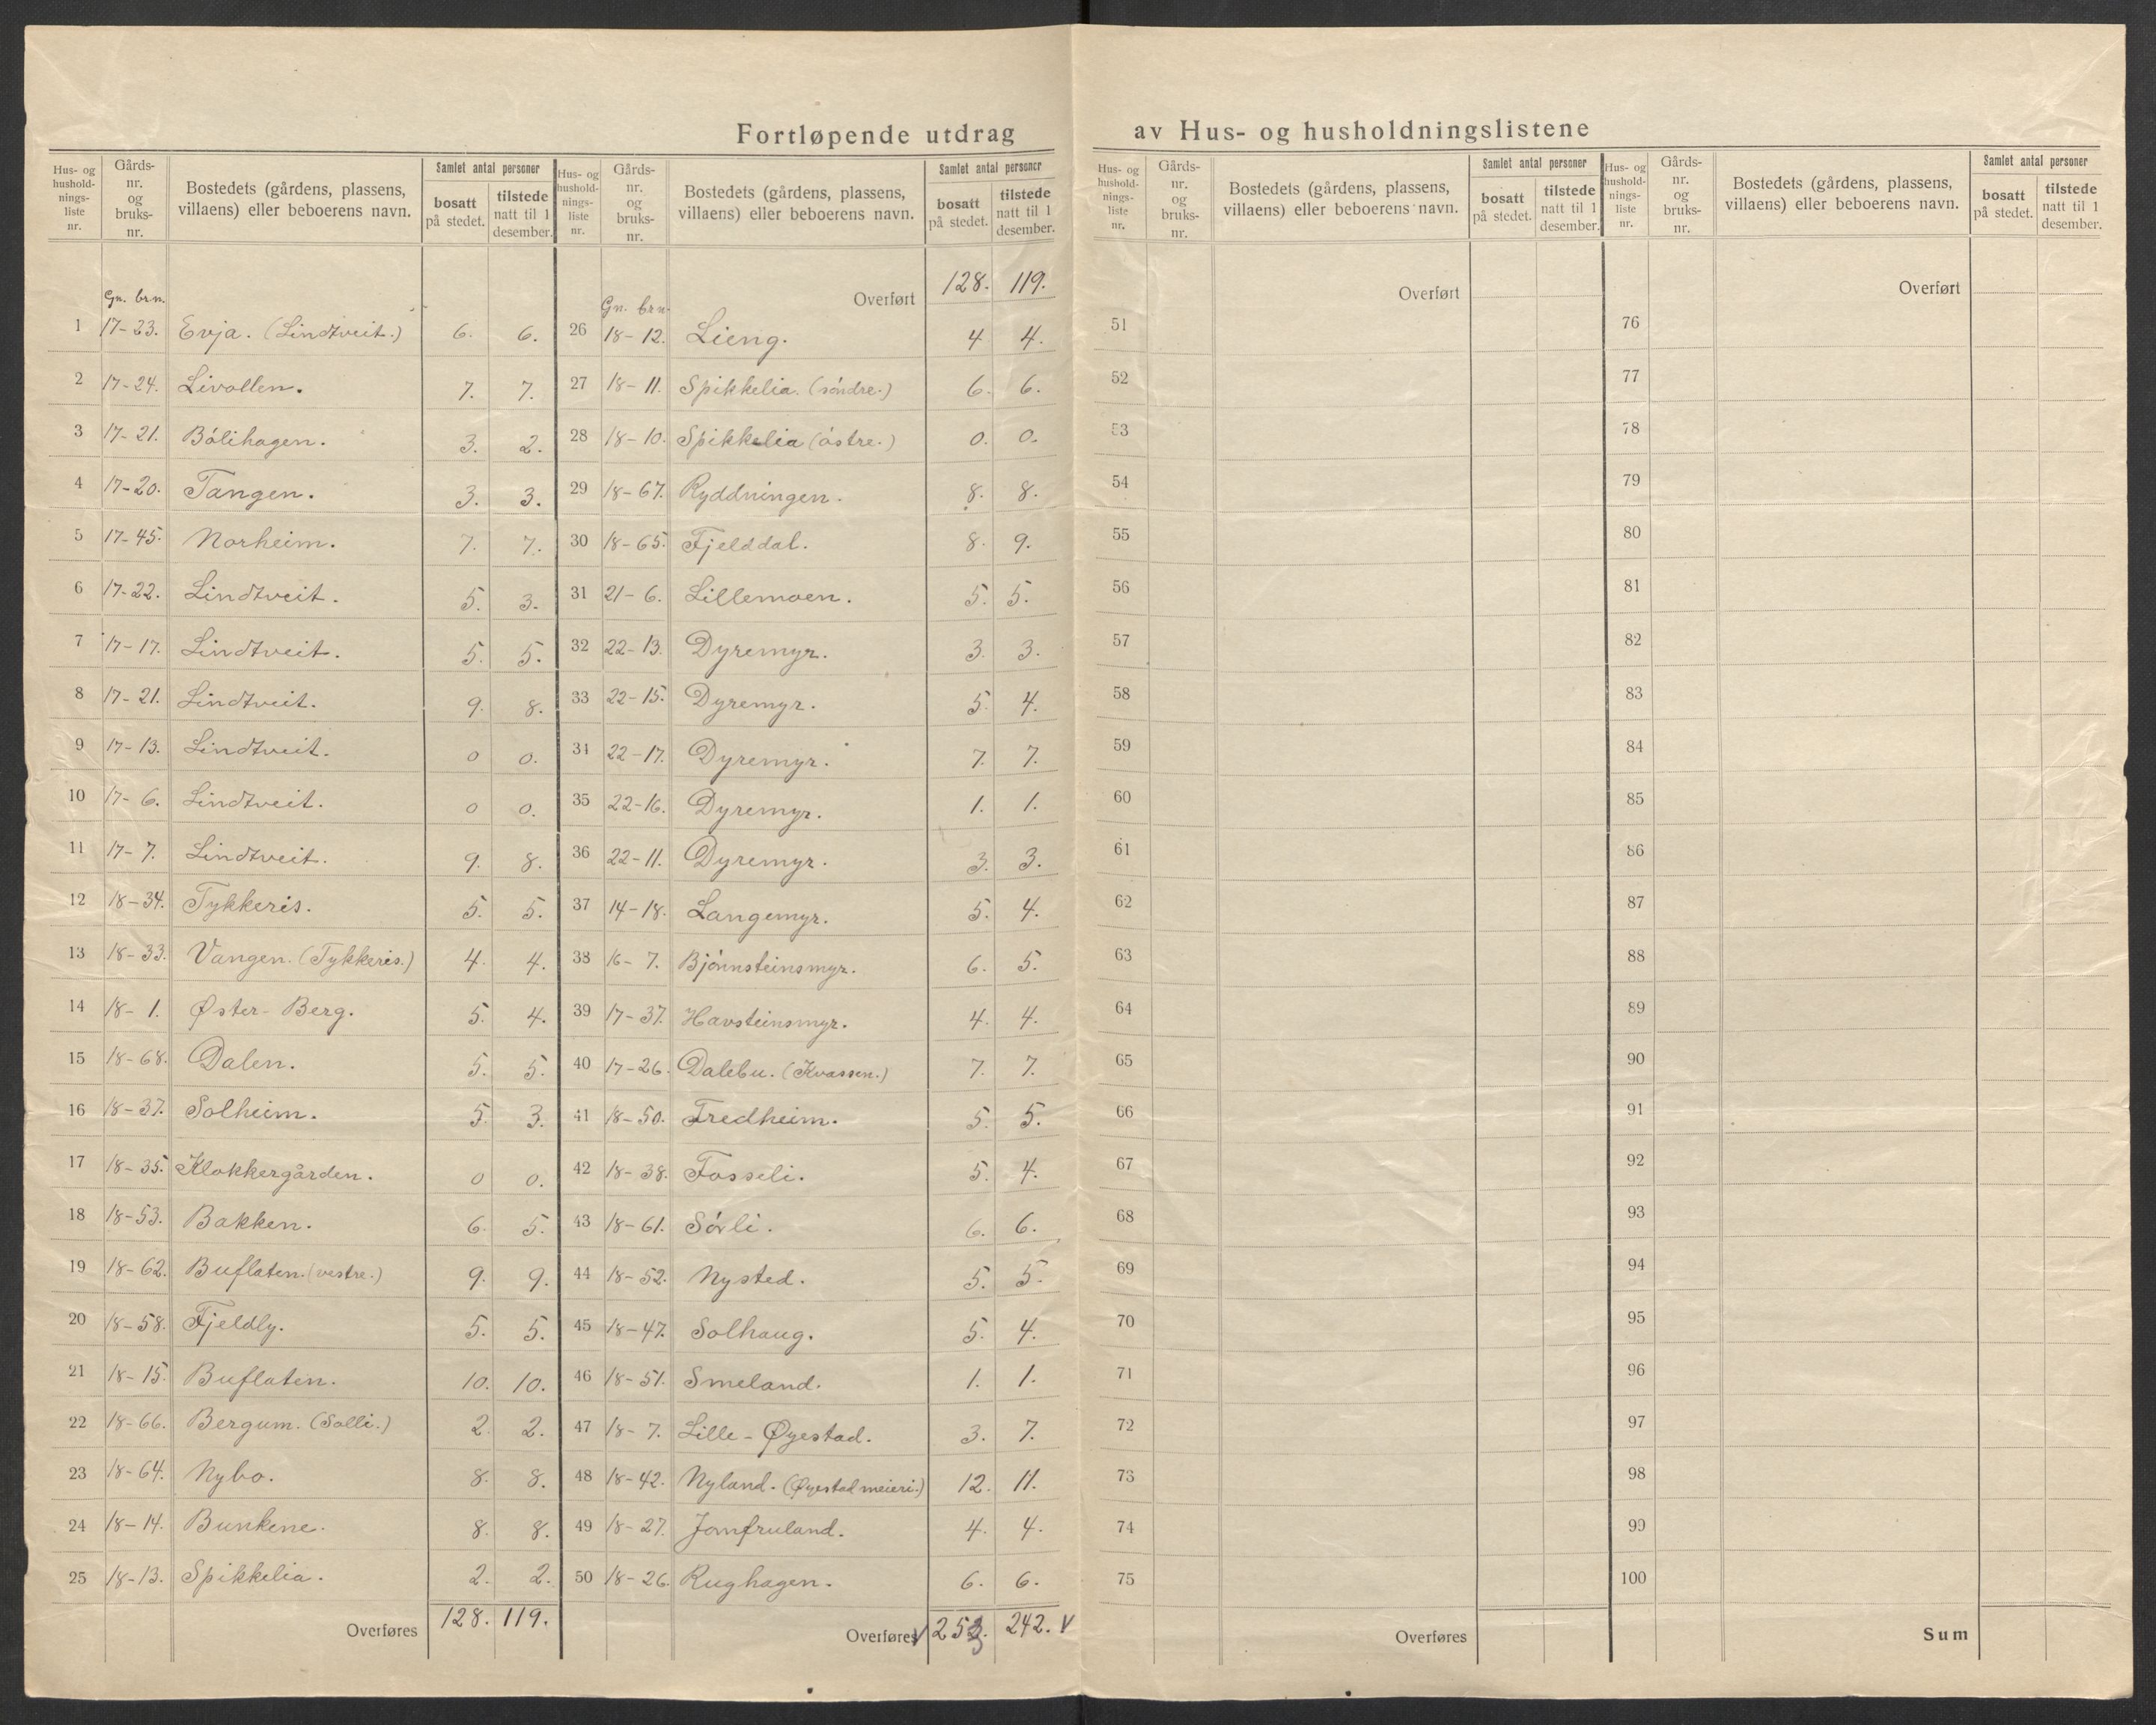 Fortløpende utdrag av Hus- og husholdningslistene
Hus- og hushold-nings-liste nr. | Gårds-nr. og bruks-nr. | Bostedets (gårdens, plassens, villaens) eller beboerens navn. | Samlet antal personer | bosatt på stedet. | tilstede natt til 1 desember.
Gn. brn.
1 17-23. Evja. (Lindtveit.) 6. 6.
2 17-24. Livollen. 7. 7.
3 17-21. Bólihagen. 3. 2.
4 17-20. Tangen. 3. 3.
5 17-45. Norheim. 7. 7.
6 17-22. Lindtveit. 5. 3.
7 17-17. Lindtveit. 5. 5.
8 17-21. Lindtveit. 9. 8.
9 17-13. Lindtveit. 0 0.
10 17-6. Lindtveit. 0 0.
11 17-7. Lindtveit. 9. 8.
12 18-34. Tykkeris. 5. 5.
13 18-33. Vangen. (Tykkeris.) 4. 4.
14 18-1. Øster-Berg. 5. 4.
15 18-68. Dalen. 5. 5.
16 18-37. Solheim. 5. 3.
17 18-35. Klokkergården. 0 0.
18 18-53. Bakken. 6. 5.
19 18-62. Buflaten. (vestre.) 9. 9.
20 18-58. Fjeldly. 5. 5.
21 18-15. Buflaten. 10. 10.
22 18-66. Bergum. (Solli.) 2. 2.
23 18-64. Nybo. 8. 8.
24 18-14. Bunkene. 8. 8.
25 18-13. Spikkelia. 2. 2.
Overføres 128. 119.
Hus- og hushold-nings-liste nr. | Gårds-nr. og bruks-nr. | Bostedets (gårdens, plassens, villaens) eller beboerens navn. | Samlet antal personer | bosatt på stedet. | tilstede natt til 1 desember.
Overført 128. 119.
Gn. brn.
26 18-12. Lieng. 4 4.
27 18-11. Spikkelia. (sóndre.) 6. 6.
28 18-10. Spikkelia (óstre.) 0. 0.
29 18-67. Ryddningen. 8. 8.
30 18-65. Fjelddal. 8. 9.
31 21-6. Lillemoen. 5. 5.
32 22-13. Dyremyr. 3. 3.
33 22-15. Dyremyr. 5. 4.
34 22-17. Dyremyr. 7. 7.
35 22-16. Dyremyr. 1. 1.
36 22-11. Dyremyr. 3. 3.
37 14-18. Langemyr. 5. 4.
38 16-7. Bjónnsteinsmyr. 6. 5.
39 17-37. Havsteinsmyr. 4. 4.
40 17-26. Dalebu. (Kvassen.) 7. 7.
41 18-50. Fredheim. 5. 5.
42 18-38. Fosseli. 5. 4.
43 18-61. Sórli. 6. 6.
44 18-52. Nysted. 5. 5.
45 18-47. Solhaug. 5. 4.
46 18-51. Smeland. 1. 1.
47 18-7. Lille-Øyestad. 3. 7.
48 18-42. Nyland. (Øyestad meieri.) 12. 11.
49 18-27. Jomfruland. 4. 4.
50 18-26. Rughagen. 6. 6.
Overføres 253. 242.
Hus- og hushold-nings-liste nr. | Gårds-nr. og bruks-nr. | Bostedets (gårdens, plassens, villaens) eller beboerens navn. | Samlet antal personer | bosatt på stedet. | tilstede natt til 1 desember.
Overført
51
52
53
54
55
56
57
58
59
60
61
62
63
64
65
66
67
68
69
70
71
72
73
74
75
Overføres
Hus- og hushold-nings-liste nr. | Gårds-nr. og bruks-nr. | Bostedets (gårdens, plassens, villaens) eller beboerens navn. | Samlet antal personer | bosatt på stedet. | tilstede natt til 1 desember.
Overført
76
77
78
79
80
81
82
83
84
85
86
87
88
89
90
91
92
93
94
95
96
97
98
99
100
Sum